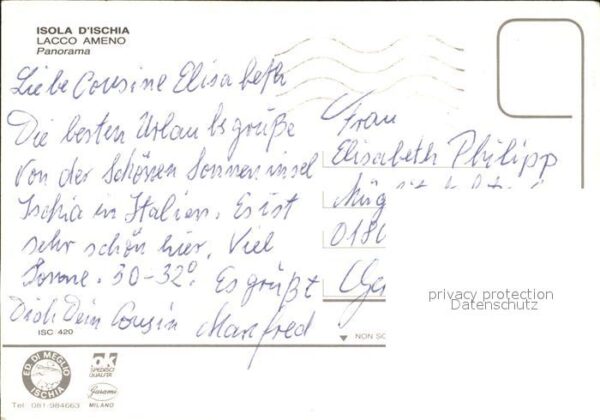 ISOLA D'ISCHIA
LACCO AMENO
Panorama
Liebe Cousine Elisabeth
Die besten Urlaubsgrüße
von der Schönen Sonneninsel
Ischia in Italien. Es ist
sehr schön hier. Viel
Sonne. 30-32° Es grüßt
Dich Dein Cousin Manfred
Frau
Elisabeth Philipp
0180
privacy protection
Datenschutz
ISC 420
NON SC
ED. DI MEGLIO
ISCHIA
Tel. 081-984663
OK
SPEDISCI
QUALITÀ
Garami
MILANO